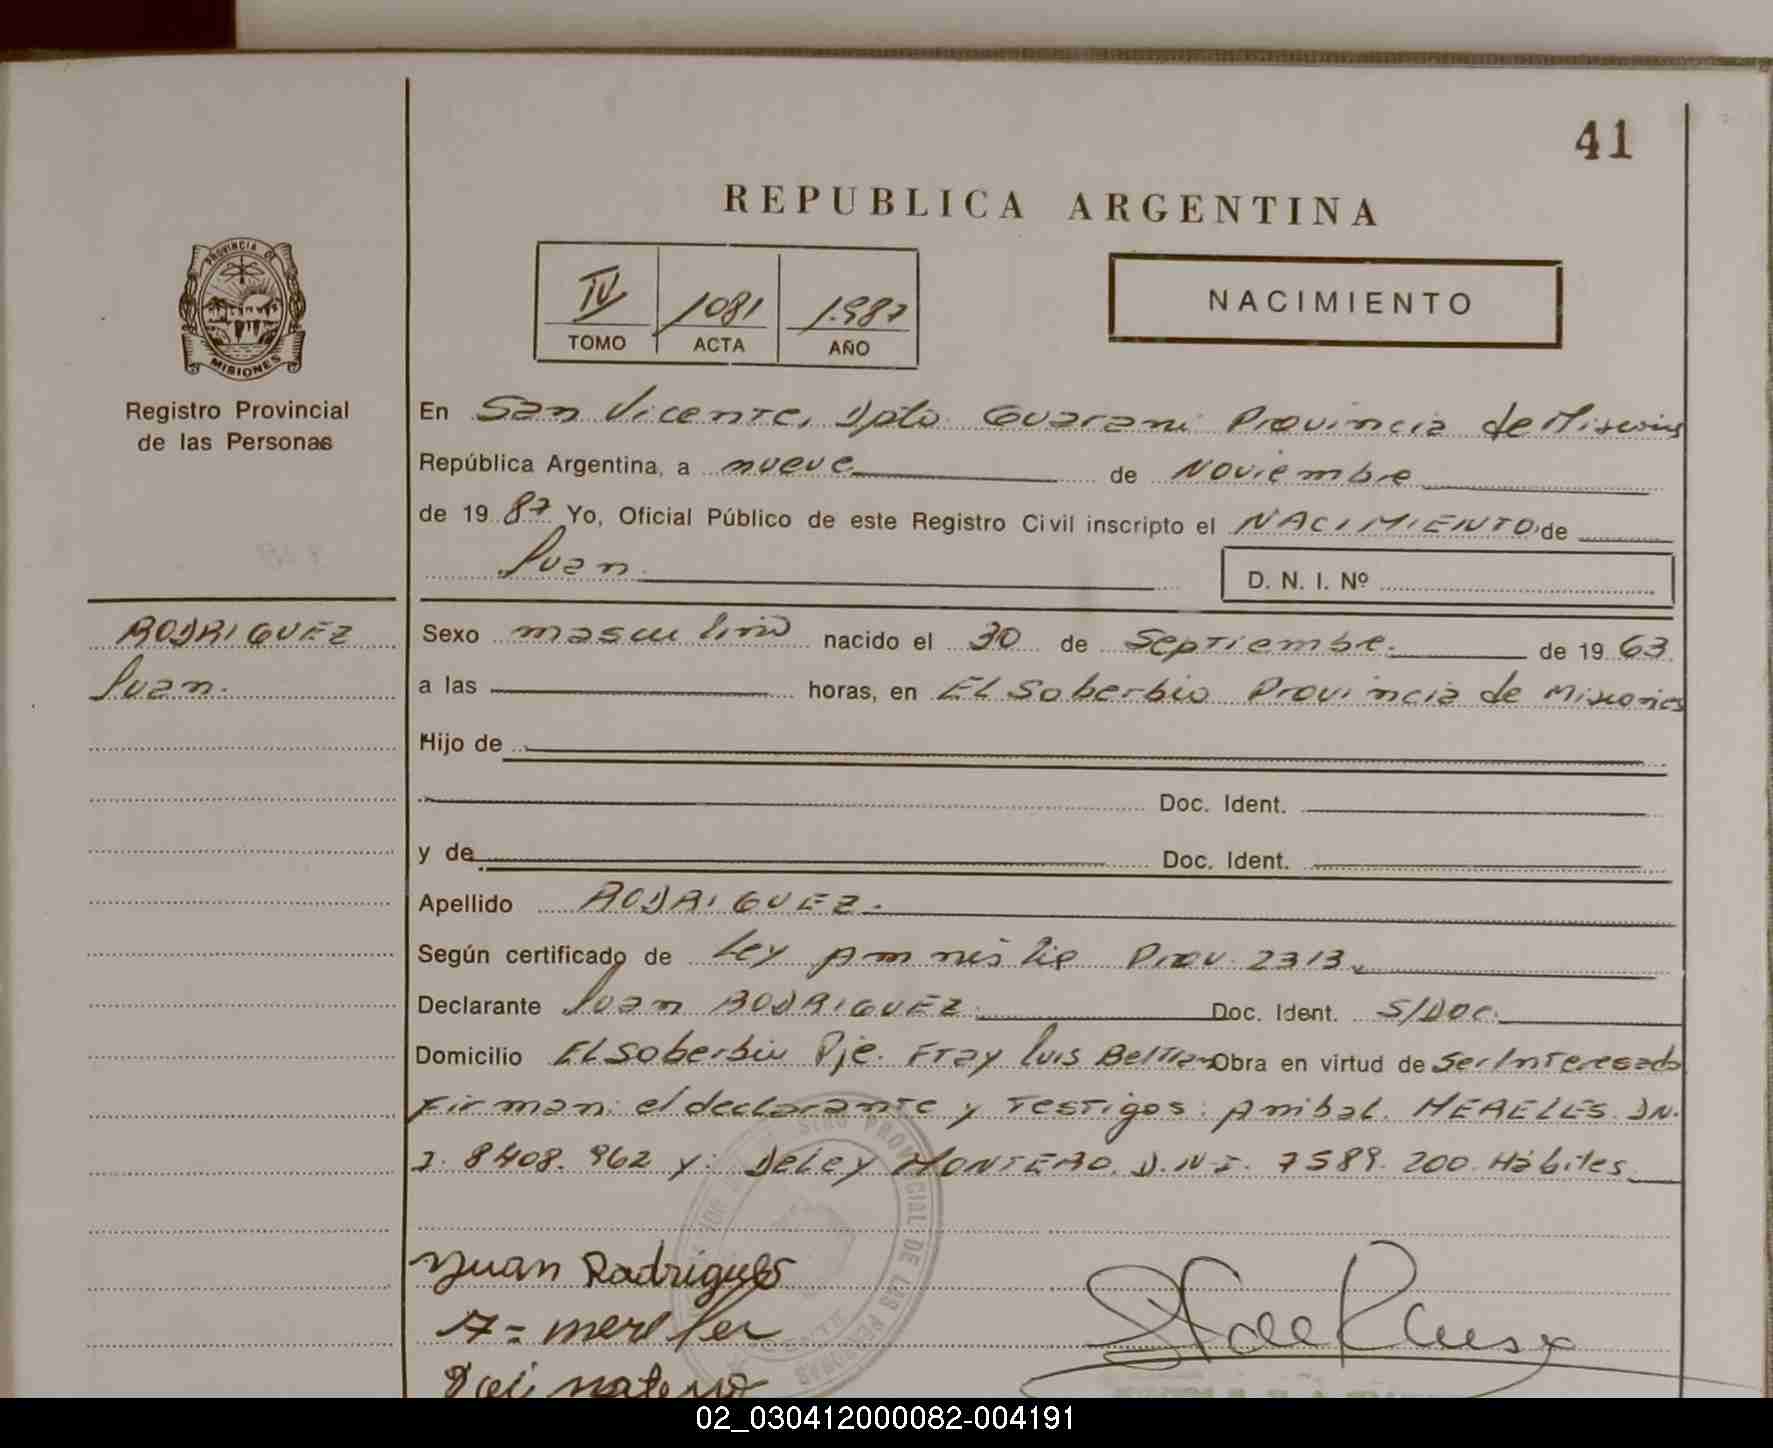 41
REPUBLICA ARGENTINA
IV 1081 1.987
TOMO ACTA AÑO
NACIMIENTO
PROVINCIA DE
MISIONES
Registro Provincial
de las Personas
En San Vicente, Dpto. Guarani Provincia de Misiones
República Argentina, a nueve de Noviembre
de 19 87 Yo, Oficial Público de este Registro Civil inscripto el NACIMIENTO de
Juan
D. N. I. Nº
RODRIGUEZ
Juan.
Sexo masculino nacido el 30 de Septiembre. de 19 63
a las horas, en El Soberbio Provincia de Misiones
Hijo de
Doc. Ident.
y de Doc. Ident.
Apellido RODRIGUEZ.
Según certificado de Ley Amnistie Prov. 2313.
Declarante Juan RODRIGUEZ. Doc. Ident. S/Doc.
Domicilio El Soberbio Pje. Fray Luis Beltran Obra en virtud de Ser Interesado
Firman: el declarante y Testigos: Anibal. MERELES DN.
I. 8408.962 y: Deley MONTERO. D.N.I. 7589.200. Hábiles
Juan Rodrigues
PROVINCIAL DE LAS PERSONAS
02_030412000082-004191